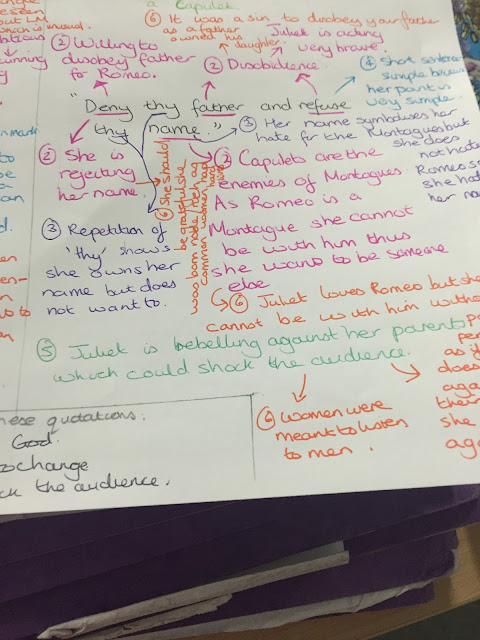 a Capulet
⑥ It was a sin to disobey your father
as a father owned his daughter.
Juliet is acting very brave.
② Willing to
disobey father
for Romeo.
② Disobidience
④ Short sentence
simple because
her point is
very simple.
"Deny thy father and refuse
thy name."
③ Her name symbolises her
hate for the Montagues but
she does
not hate
Romeo so
she hate
her na
② She is
rejecting
her name.
⑥ She should
be grateful she
was born noble, rich as
common women had
hard lives
② Capulets are the
enemies of Montagues.
As Romeo is a
Montague she cannot
be with him thus
she wants to be someone
else
③ Repetition of
'thy' shows
she owns her
name but does
not want to.
⑥ Juliet loves Romeo but she
cannot be with him witho
⑤ Juliet is rebelling against her parents
which could shock the audience.
⑥ Women were
meant to listen
to men.
as i
does
aga
their
she
aga
hese quotations:
God.
change
ck the audience.